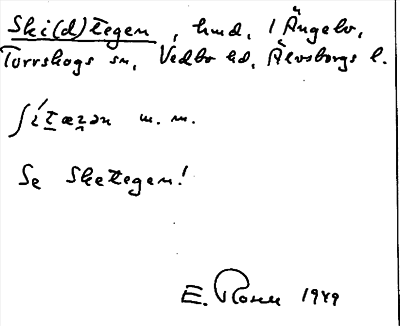 Ski(d)tegen, hmd, 1 Ängebo,
Torrskogs sn, Vedbo hd, Älvsborgs l.
ʃítæzən m. m.
Se Sketegen!
E. Rosell 1949